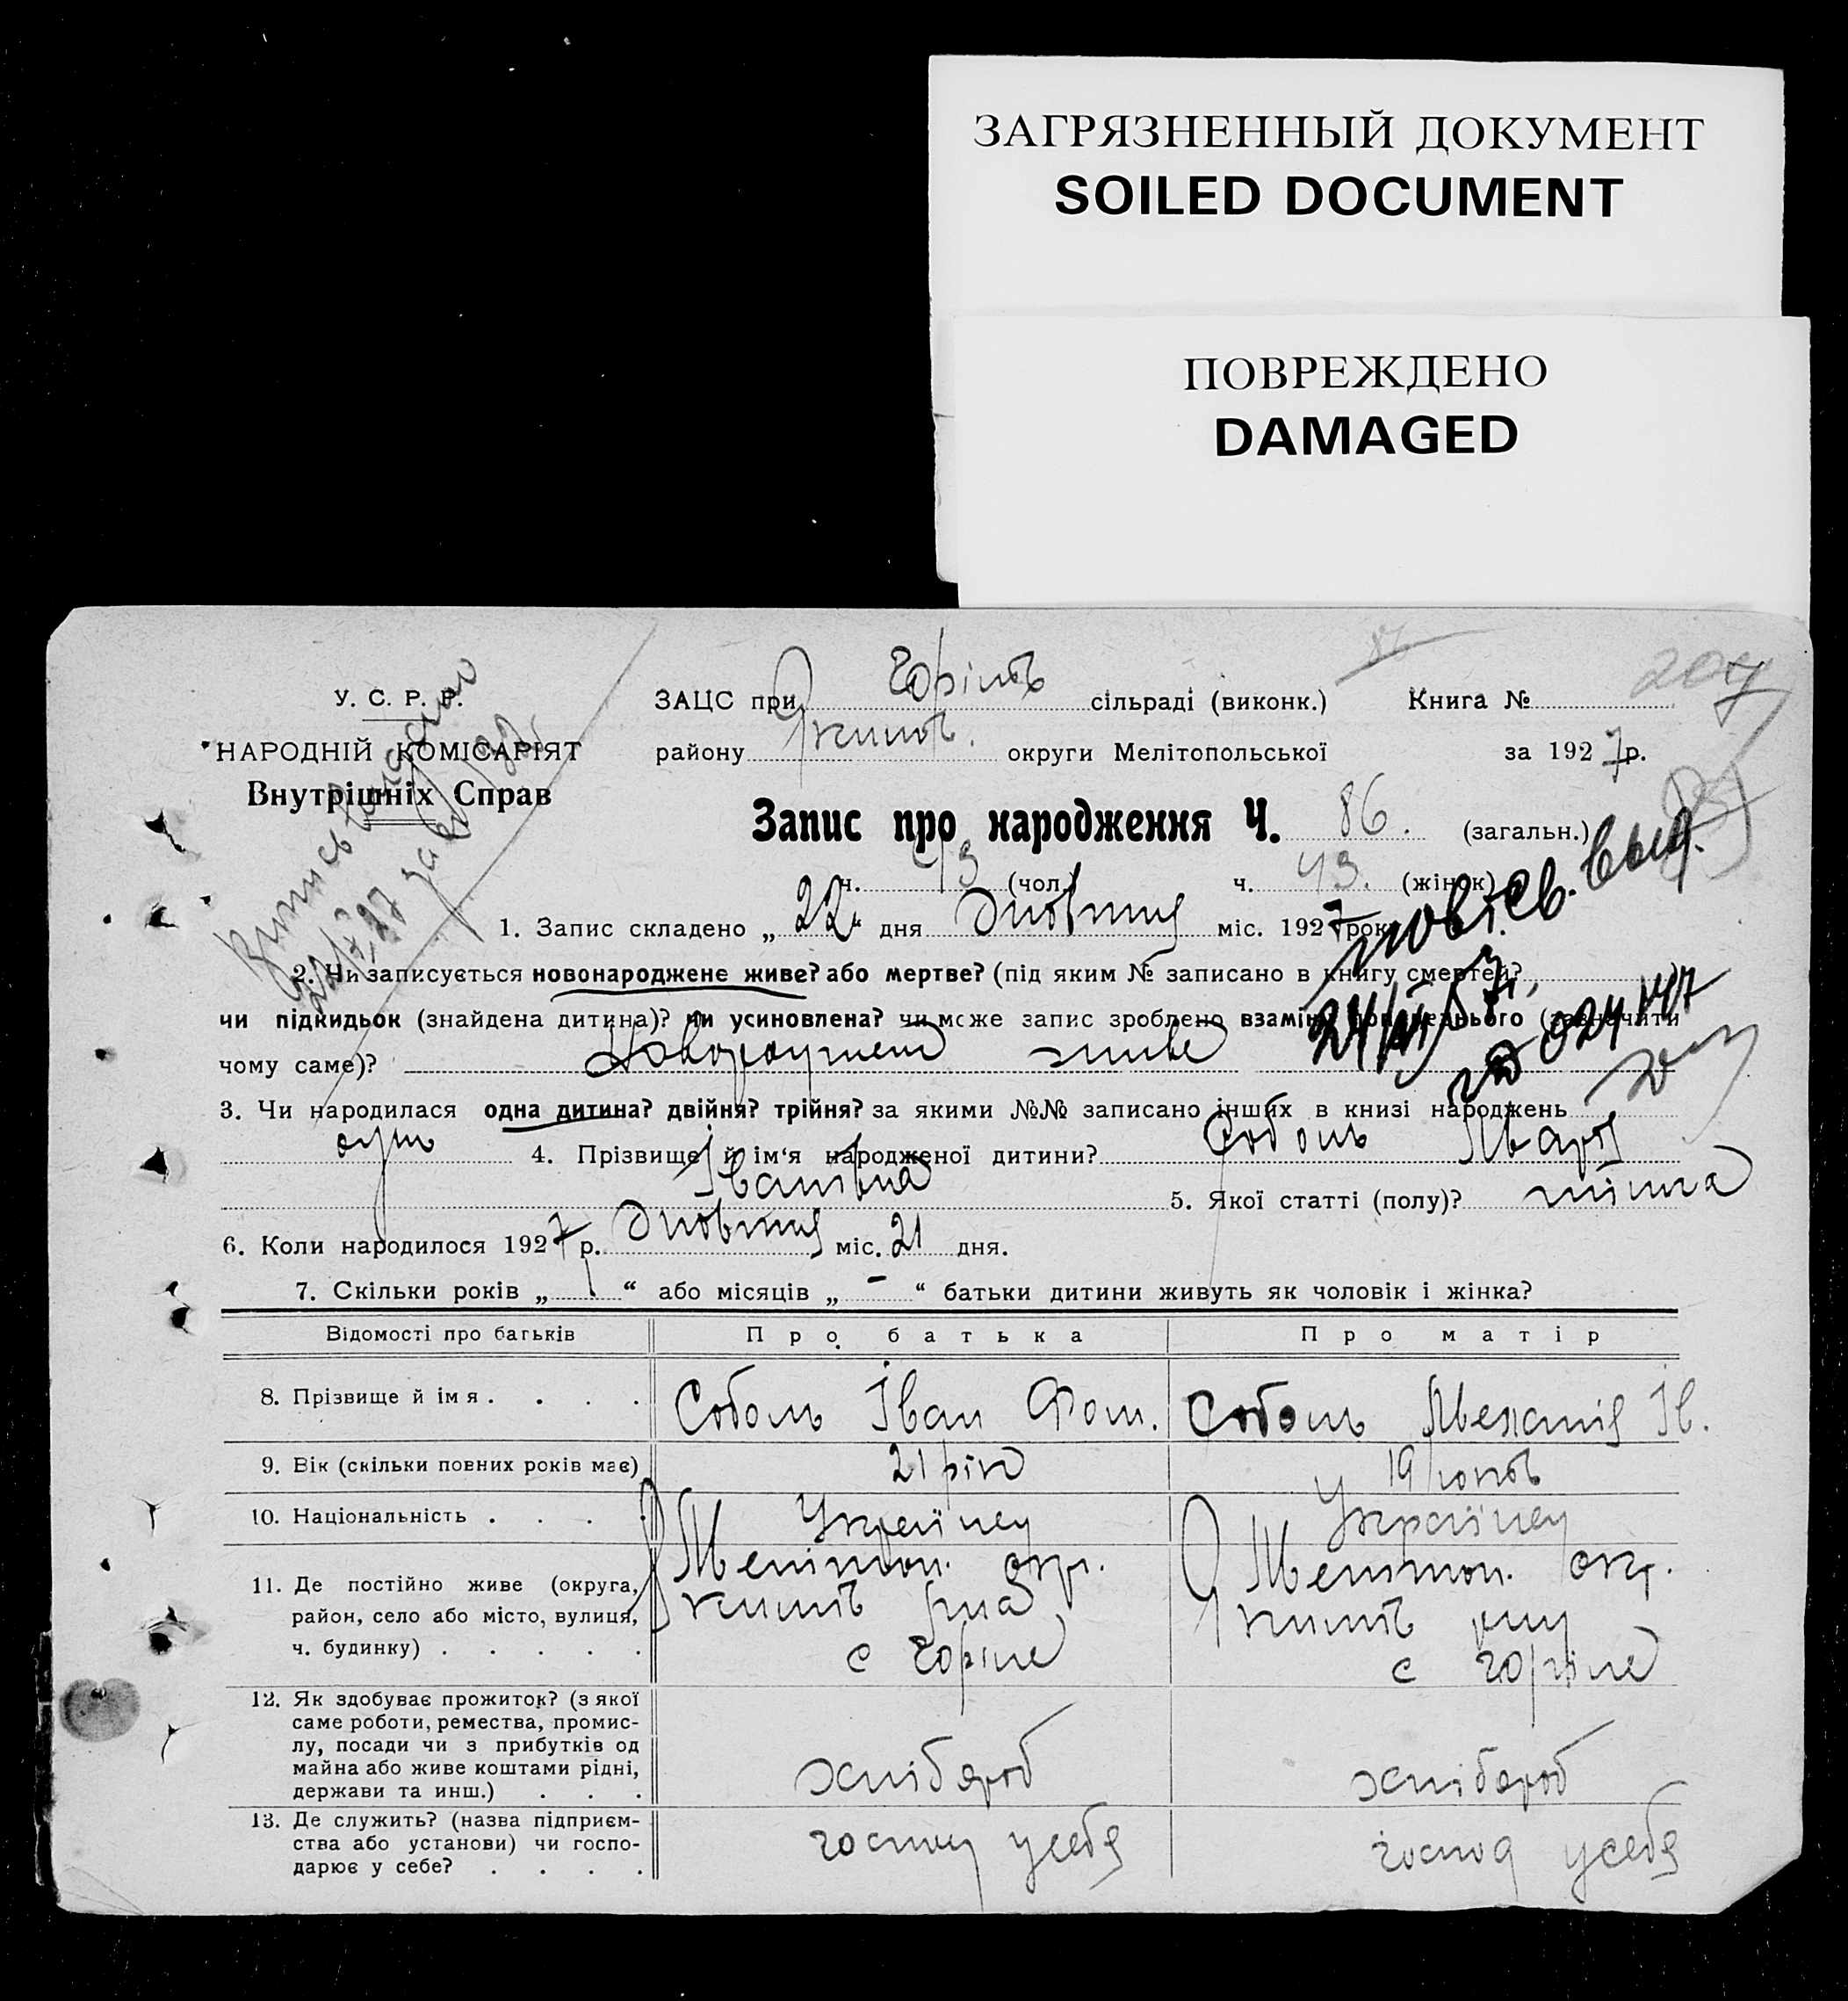 ЗАГРЯЗНЕННЫЙ ДОКУМЕНТ
SOILED DOCUMENT
ПОВРЕЖДЕНО
DAMAGED
У. С. Р. Р.
НАРОДНІЙ КОМІСАРІЯТ
Внутрішніх Справ
ЗАЦС при сільраді (виконк.) Книга № 204
району округи Мелітопольської за 1927 р.
Запис про народження Ч. 86. (загальн.)
ч. 43 (чол.) ч. 43. (жінок)
1. Запис складено „ 22 “ дня Жовтня міс. 1927 рок
2. Чи записується новонароджене живе? або мертве? (під яким № записано в книгу смертей?
чи підкидьок (знайдена дитина)? чи усиновлена? чи може запис зроблено взамін попереднього (зазначити
чому саме)? живе
3. Чи народилася одна дитина? двійня? трійня? за якими №№ записано інших в книзі народжень
4. Прізвище й ім'я народженої дитини? Соболь Марія
Іванівна 5. Якої статті (полу)? жіноча
6. Коли народилося 1927 р. Жовтня міс. 21 дня.
7. Скільки років „ 1 “ або місяців „ - “ батьки дитини живуть як чоловік і жінка?
Відомості про батьків Про батька Про матір
8. Прізвище й імя . . . . Соболь Іван Фом. Соболь Меланія Ів.
9. Вік (скільки повних років має) 21 рік 19 років
10. Національність . . . . Україней Україней
11. Де постійно живе (округа, Мелітоп. окр. Мелітоп. окр.
район, село або місто, вулиця,
ч. будинку) . . . . . с с
12. Як здобуває прожиток? (з якої
саме роботи, ремества, промис-
лу, посади чи з прибутків од
майна або живе коштами рідні, хлібороб хлібороб
держави та инш.) . . .
13. Де служить? (назва підприєм-
ства або установи) чи госпо- господ у себя господ у себя
дарює у себе? . . . .